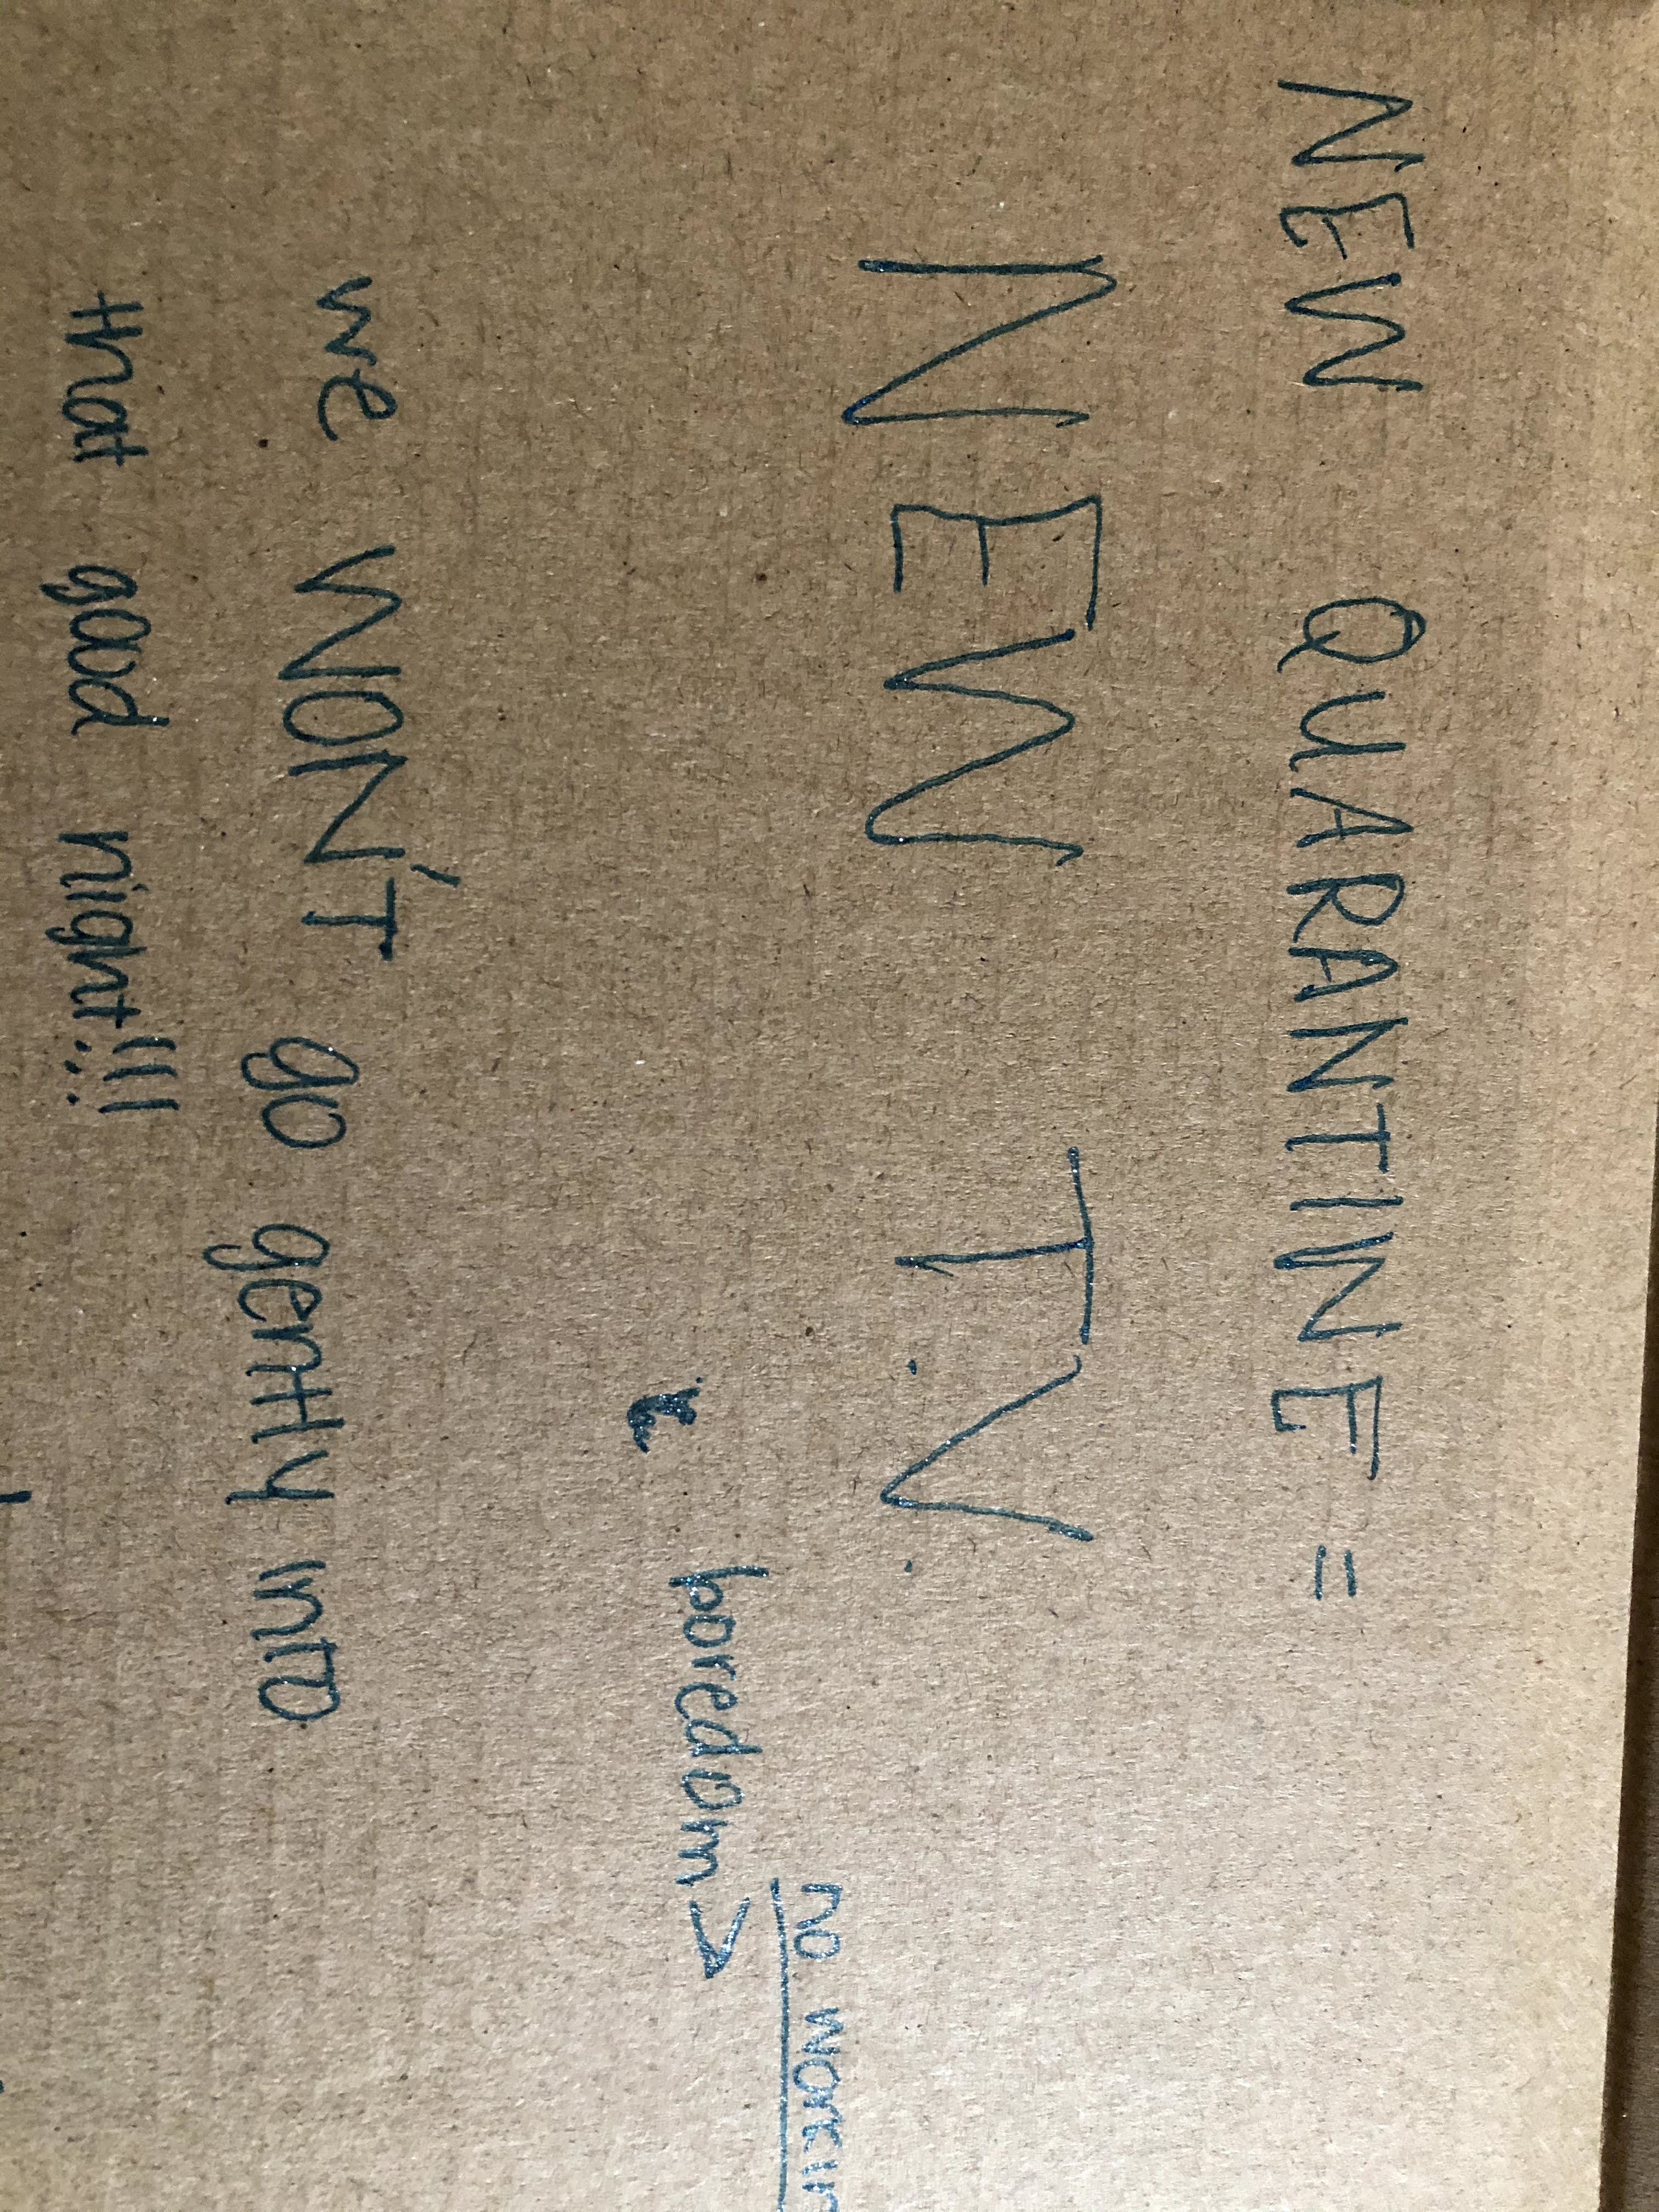 NEW QUARANTINE =
NEW T.V.
no
boredom >
we WON'T go gently into
that good night!!!